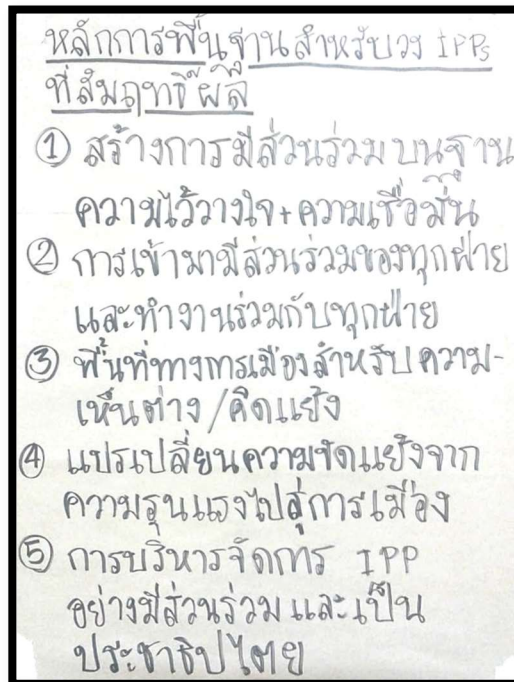 หลักการพื้นฐานสำหรับวง IPPs
ที่สัมฤทธิ์ผล
① สร้างการมีส่วนร่วมบนฐาน
ความไว้วางใจ+ความเชื่อมั่น
② การเข้ามามีส่วนร่วมของทุกฝ่าย
และทำงานร่วมกับทุกฝ่าย
③ พื้นที่ทางการเมืองสำหรับความ-
เห็นต่าง/คิดแย้ง
④ แปรเปลี่ยนความขัดแย้งจาก
ความรุนแรงไปสู่การเมือง
⑤ การบริหารจัดการ IPP
อย่างมีส่วนร่วมและเป็น
ประชาธิปไตย